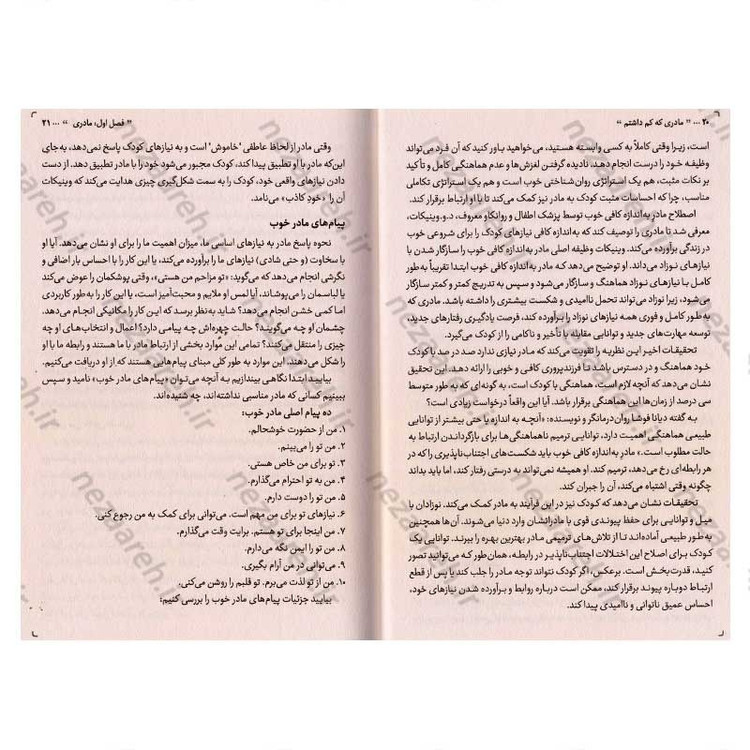 ۲۰ ... » مادری که کم داشتم «
است، زیرا وقتی کاملاً به کسی وابسته هستید، می‌خواهید باور کنید که آن فرد می‌تواند
وظیفه خود را درست انجام دهد. نادیده گرفتن لغزش‌ها و عدم هماهنگی کامل و تأکید
بر نکات مثبت، هم یک استراتژی روان‌شناختی خوب است و هم یک استراتژی تکاملی
مناسب، چرا که احساسات مثبت کودک به مادر نیز کمک می‌کند تا با او ارتباط برقرار کند.
اصطلاح مادر به‌اندازه کافی خوب توسط پزشک اطفال و روانکاو معروف، د.و.وینیکات،
معرفی شد تا مادری را توصیف کند که به‌اندازه کافی نیازهای کودک را برای شروعی خوب
در زندگی برآورده می‌کند. وینیکات وظیفه اصلی مادر به‌اندازه کافی خوب را سازگار شدن با
نیازهای نوزاد می‌داند. او توضیح می‌دهد که مادر به‌اندازه کافی خوب ابتدا تقریباً به‌طور
کامل با نیازهای نوزاد هماهنگ و سازگار می‌شود و سپس به تدریج کمتر و کمتر سازگار
می‌شود، زیرا نوزاد می‌تواند تحمل ناامیدی و شکست بیشتری را داشته باشد. مادری که
به‌طور کامل و فوری همه نیازهای نوزاد را برآورده کند، فرصت یادگیری رفتارهای جدید،
توسعه مهارت‌های جدید و توانایی مقابله با تأخیر و ناکامی را از کودک می‌گیرد.
تحقیقات اخیر این نظریه را تقویت می‌کند که مادر نیازی ندارد صد در صد با کودک
خود هماهنگ و در دسترس باشد تا فرزندپروری کافی و خوبی را ارائه دهد. این تحقیق
نشان می‌دهد که آنچه لازم است، هماهنگی با کودک است، به گونه‌ای که به طور متوسط
سی درصد از زمان‌ها این هماهنگی برقرار باشد. آیا این واقعاً درخواست زیادی است؟
به گفته دیانا فوشا روان‌درمانگر و نویسنده: «آنچه به اندازه یا حتی بیشتر از توانایی
طبیعی هماهنگی اهمیت دارد، توانایی ترمیم ناهماهنگی‌ها برای بازگرداندن ارتباط به
حالت مطلوب است.» مادر به‌اندازه کافی خوب باید شکست‌های اجتناب‌ناپذیری را که در
هر رابطه‌ای رخ می‌دهد، ترمیم کند. او همیشه نمی‌تواند به درستی رفتار کند، اما باید بداند
چگونه وقتی اشتباه می‌کند، آن را جبران کند.
تحقیقات نشان می‌دهد که کودک نیز در این فرآیند به مادر کمک می‌کند. نوزادان با
میل و توانایی برای حفظ پیوندی قوی با مادرانشان وارد دنیا می‌شوند. آن‌ها همچنین
به‌طور طبیعی آماده‌اند تا از تلاش‌های ترمیمی مادر بهترین بهره را ببرند. توانایی یک
کودک برای اصلاح این اختلالات اجتناب‌ناپذیر در رابطه، همان‌طور که می‌توانید تصور
کنید، قدرت‌بخش است. برعکس، اگر کودک نتواند توجه مادر را جلب کند یا پس از قطع
ارتباط دوباره پیوند برقرار کند، ممکن است درباره روابط و برآورده شدن نیازهای خود،
احساس عمیق ناتوانی و ناامیدی پیدا کند.
» فصل اول: مادری « ... ۲۱
وقتی مادر از لحاظ عاطفی 'خاموش' است و به نیازهای کودک پاسخ نمی‌دهد، به‌جای
این‌که مادر با او تطبیق پیدا کند، کودک مجبور می‌شود خود را با مادر تطبیق دهد. از دست
دادن نیازهای واقعی خود، کودک را به سمت شکل‌گیری چیزی هدایت می‌کند که وینیکات
آن را «خودِ کاذب» می‌نامد.
پیام‌های مادر خوب
نحوه پاسخ مادر به نیازهای اساسی ما، میزان اهمیت ما را برای او نشان می‌دهد. آیا او
با سخاوت (و حتی شادی) نیازهای ما را برآورده می‌کند، یا این کار را با احساس بار اضافی و
نگرشی انجام می‌دهد که می‌گوید: «تو مزاحم من هستی»، وقتی پوشکمان را عوض می‌کند
یا لباسمان را می‌پوشاند. آیا لمس او ملایم و محبت‌آمیز است، یا این کار را به‌طور کاربردی
اما کمی خشن انجام می‌دهد؟ شاید به‌نظر برسد که این کار را مکانیکی انجام می‌دهد.
چشمان او چه می‌گویند؟ حالت چهره‌اش چه پیامی دارد؟ اعمال و انتخاب‌های او چه
چیزی را منتقل می‌کنند؟ تمامی این موارد بخشی از ارتباط مادر با ما هستند و رابطه ما با او
را شکل می‌دهند. این موارد به طور کلی مبنای پیام‌هایی هستند که از او دریافت می‌کنیم.
بیایید ابتدا نگاهی بیندازیم به آنچه می‌توان «پیام‌های مادر خوب» نامید و سپس
ببینیم کسانی که مادر مناسبی نداشته‌اند، چه شنیده‌اند.
ده پیام اصلی مادر خوب:
۱. من از حضورت خوشحالم.
۲. من تو را می‌بینم.
۳. تو برای من خاص هستی.
۴. من به تو احترام می‌گذارم.
۵. من تو را دوست دارم.
۶. نیازهای تو برای من مهم است. می‌توانی برای کمک به من رجوع کنی.
۷. من اینجا برای تو هستم. برایت وقت می‌گذارم.
۸. من تو را ایمن نگه می‌دارم.
۹. می‌توانی در من آرام بگیری.
۱۰. من از تو لذت می‌برم. تو قلبم را روشن می‌کنی.
بیایید جزئیات پیام‌های مادر خوب را بررسی کنیم:
nezhareh.ir